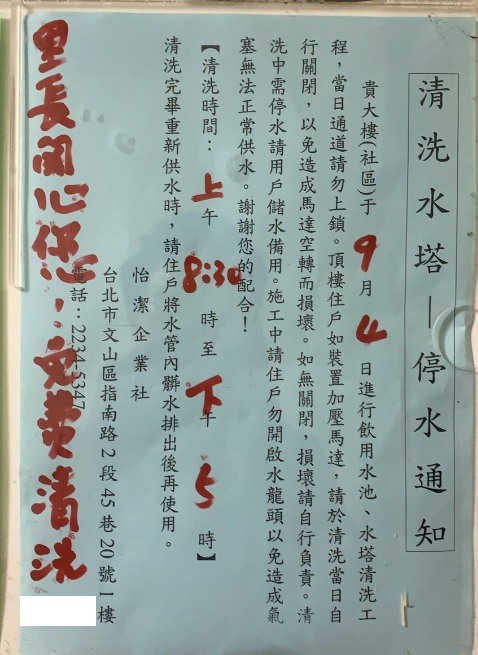 清洗水塔—停水通知
貴大樓(社區)于9月4日進行飲用水池、水塔清洗工
程，當日通道請勿上鎖。頂樓住戶如裝置加壓馬達，請於清洗當日自
行關閉，以免造成馬達空轉而損壞。如無關閉，損壞請自行負責。清
洗中需停水請用戶儲水備用。施工中請住戶勿開啟水龍頭以免造成氣
塞無法正常供水。謝謝您的配合！
【清洗時間：上午8:30時至下午5時】
清洗完畢重新供水時，請住戶將水管內髒水排出後再使用。
怡潔企業社
台北市文山區指南路2段45巷20號1樓
電話：2234-5347
里長関心您！免費清洗